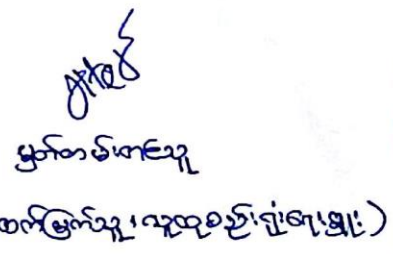 မှတ်တမ်းတင်သူ
ထက်မြက်သူ၊ လူထုစည်းရုံးရေးမှူး)